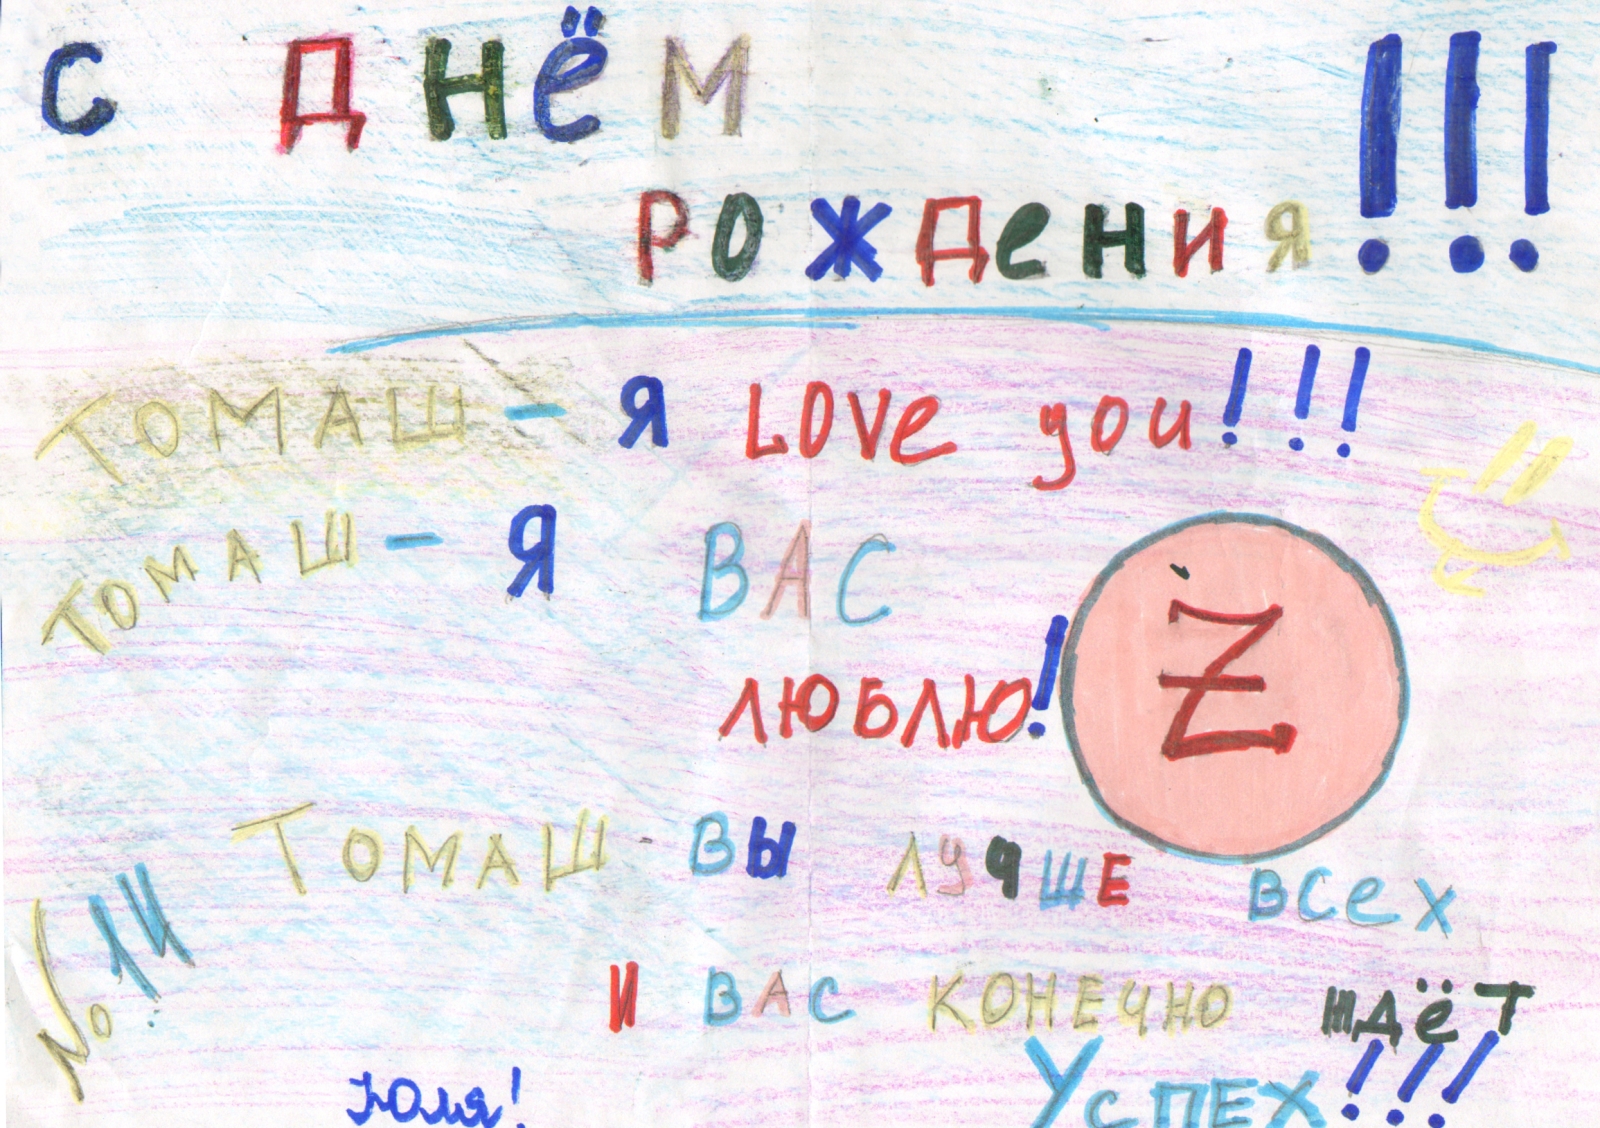 С ДНЁМ
РОЖДЕНИЯ!!!
ТОМАШ - Я LOVE you!!!
ТОМАШ - Я ВАС
ЛЮБЛЮ!
Ż
ТОМАШ - ВЫ ЛУЧШЕ ВСЕХ
И ВАС КОНЕЧНО ЖДЁТ
УСПЕХ!!!
Юля!